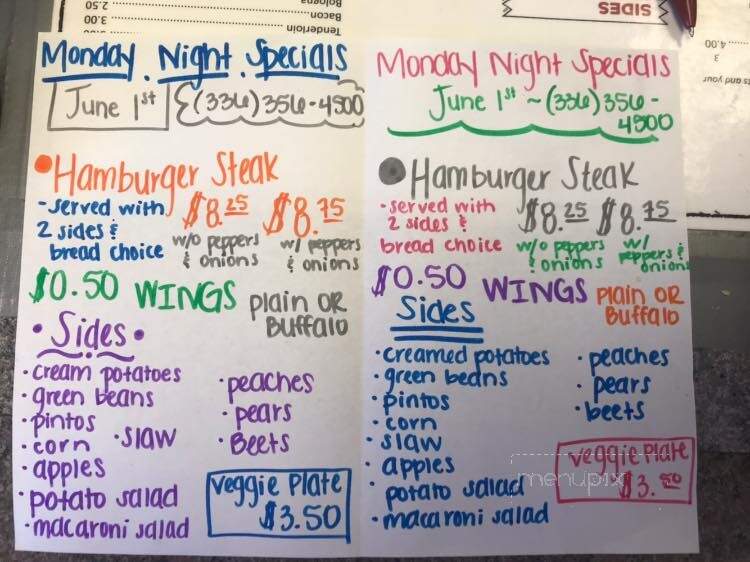 Bologna
Bacon 2.50
Tenderloin 3.00
SIDES
4.00
3
Monday Night Specials
June 1st (336)356-4500
• Hamburger Steak
- served with 2 sides & bread choice
$8.25 $8.75
w/o peppers & onions
w/ peppers & onions
$0.50 WINGS Plain OR Buffalo
• Sides •
• cream potatoes
• green beans
• pintos
• corn
• slaw
• apples
• potato salad
• macaroni salad
• peaches
• pears
• Beets
veggie Plate
$3.50
Monday Night Specials
June 1st ~ (336)356-
4500
• Hamburger Steak
- served with 2 sides & bread choice
$8.25 $8.75
w/o peppers & onions
w/ peppers & onions
$0.50 WINGS Plain OR Buffalo
Sides
• creamed potatoes
• green beans
• pintos
• corn
• slaw
• apples
• potato salad
• macaroni salad
• peaches
• pears
• beets
veggie Plate
$3.50
menupix